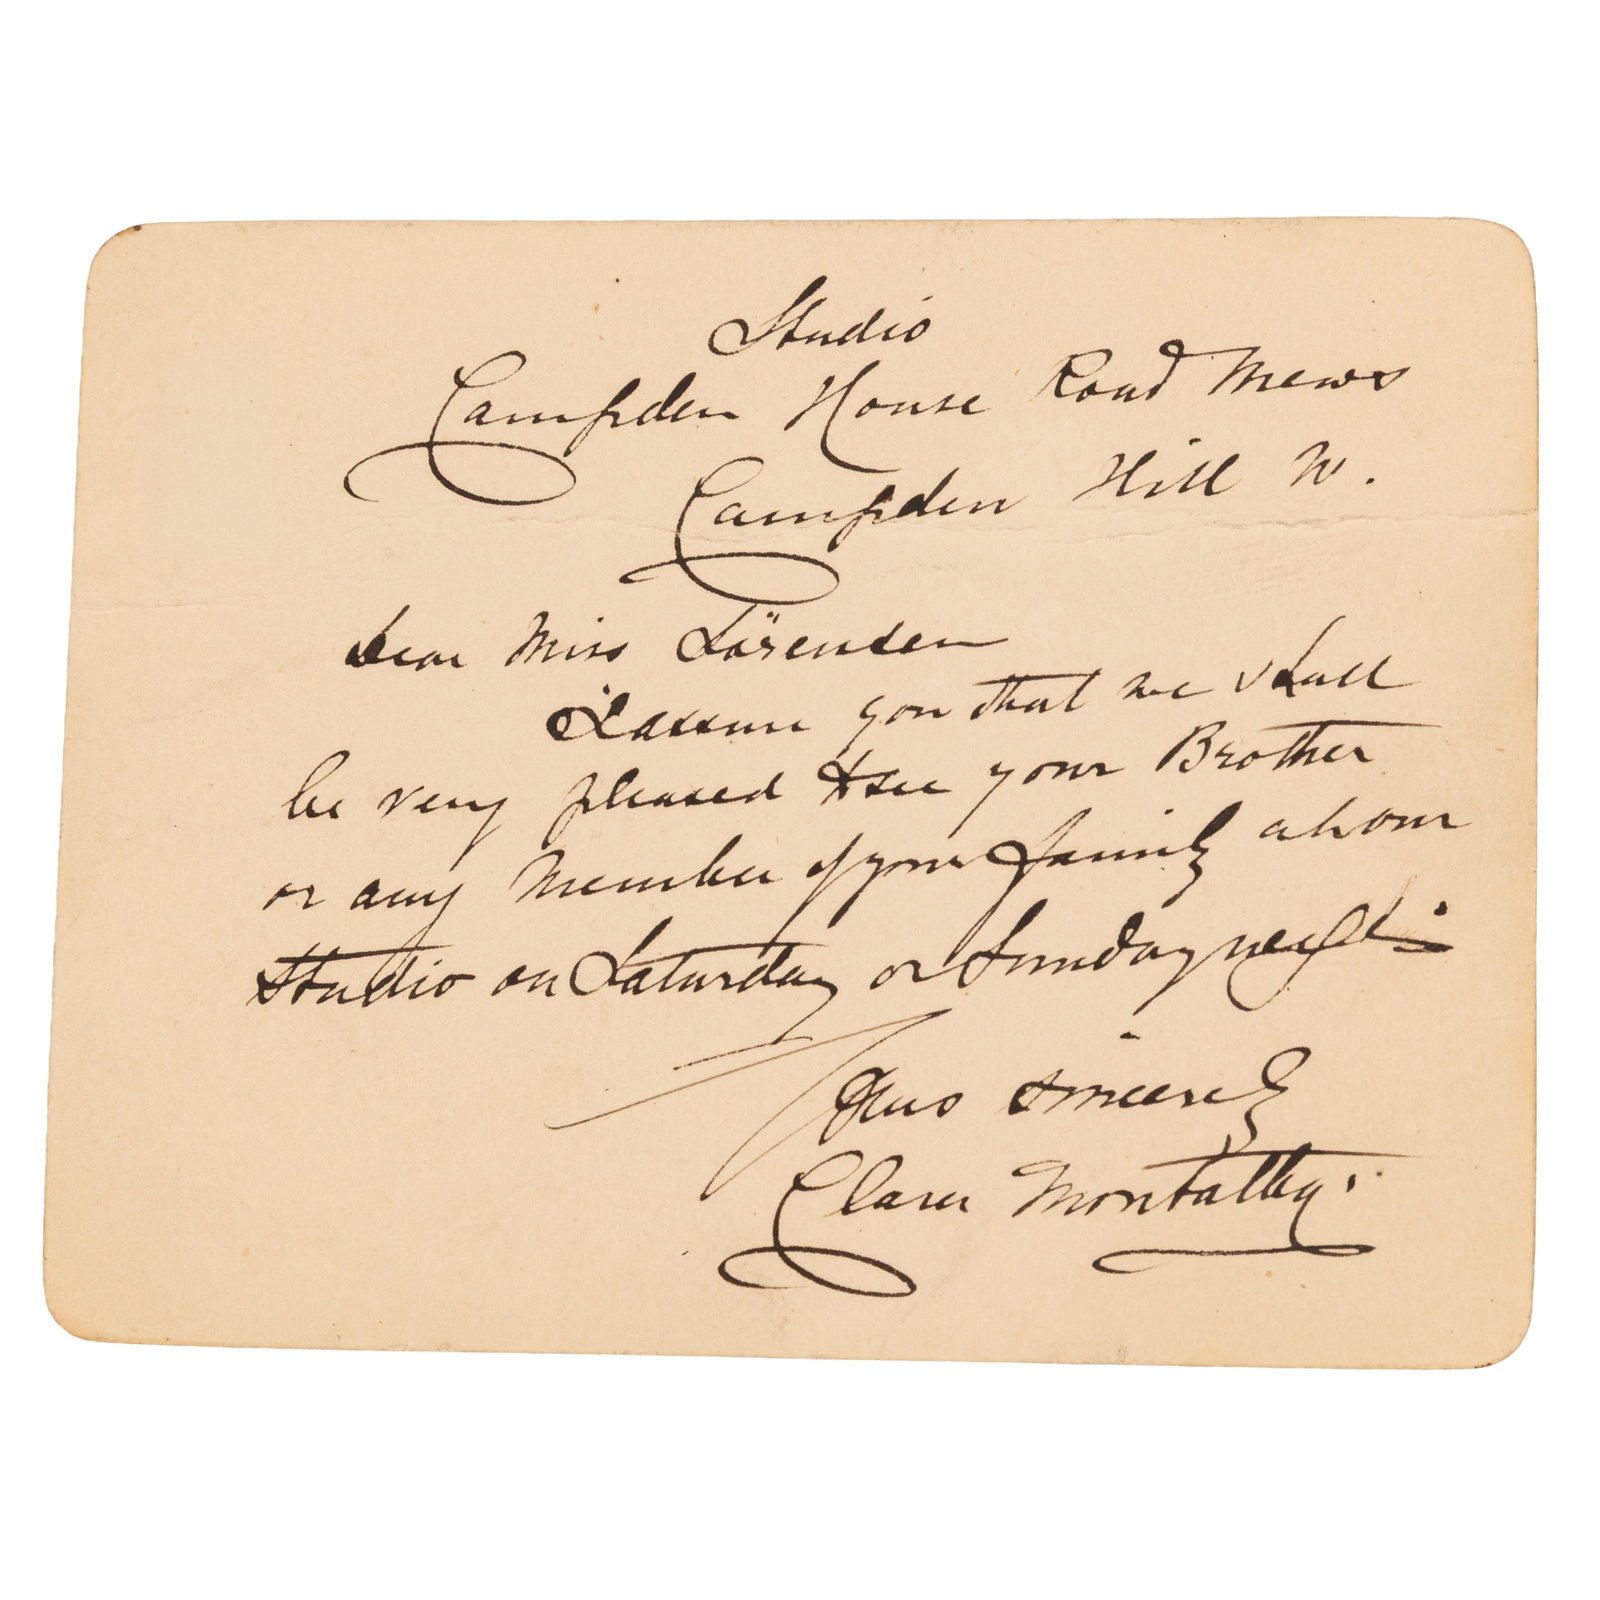 Studio
Campden House Road Mews
Campden Hill W.
Dear Miss
I assure you that we shall
be very pleased to see your Brother
or any Member of your family at our
Studio on Saturday or Sunday next.
Yours sincerely
Clara Montalba.